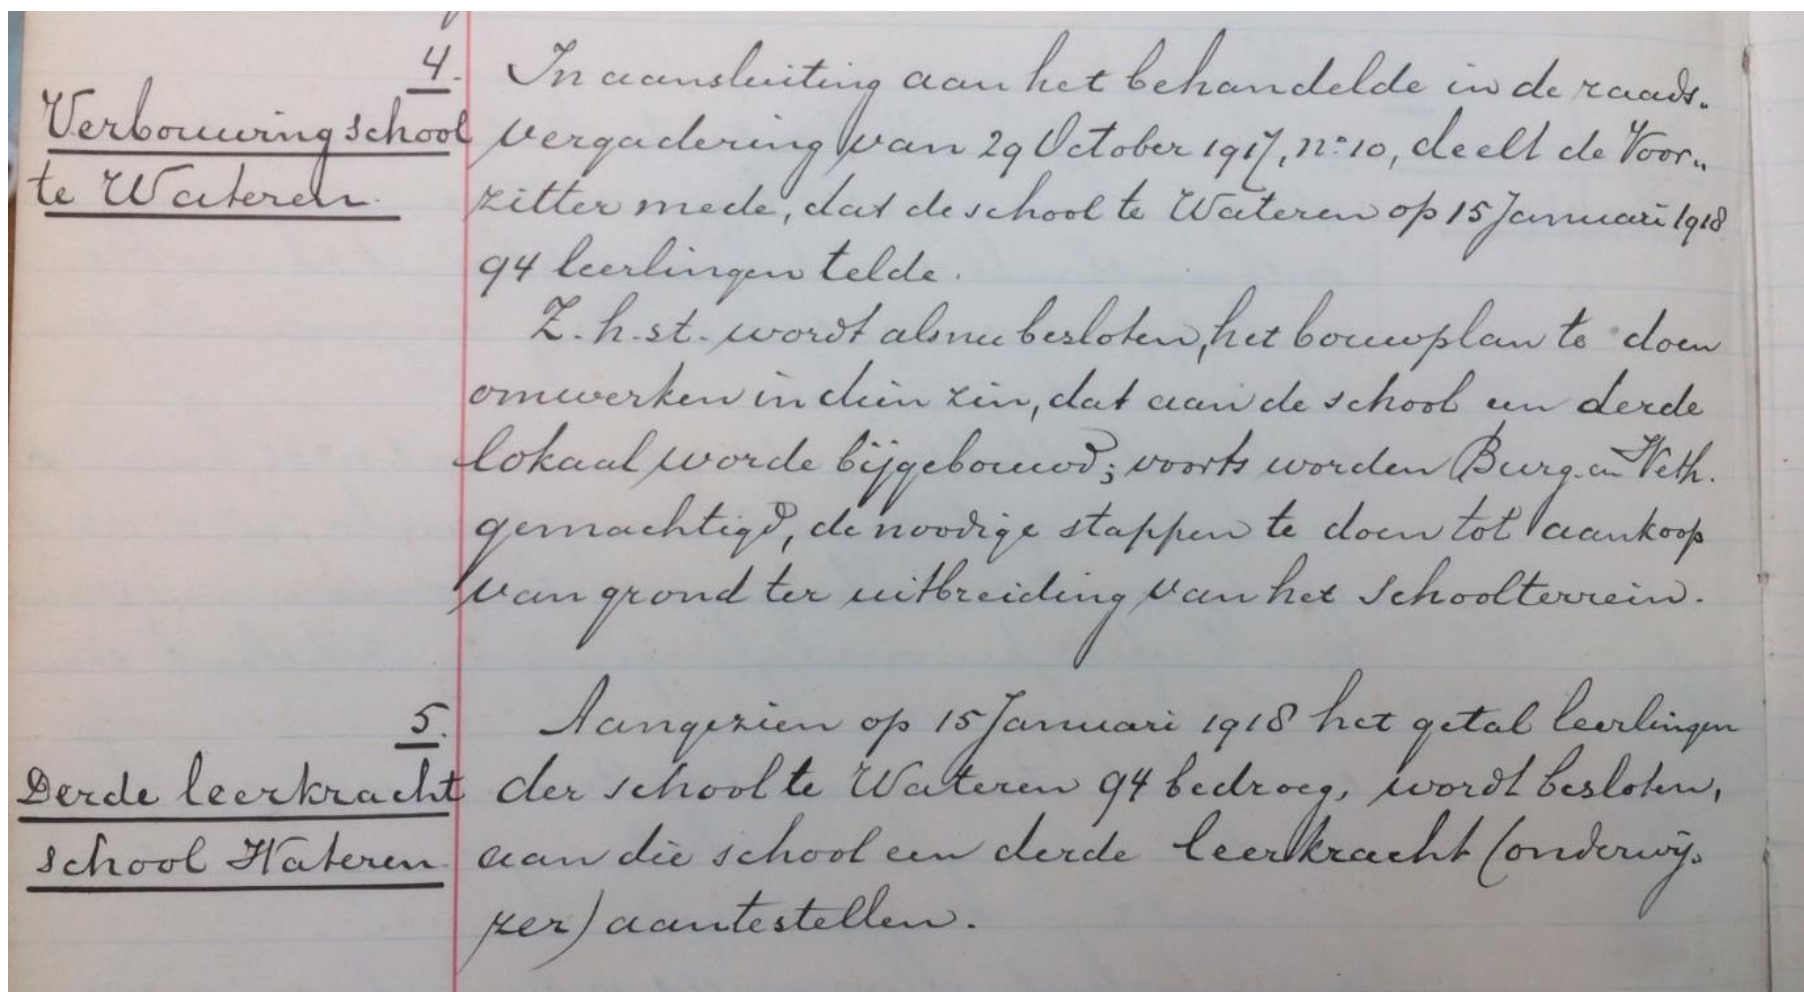 4.
Verbouwing school
te Wateren.
In aansluiting aan het behandelde in de raads-
vergadering van 29 October 1917, no 10, deelt de Voor-
zitter mede, dat de school te Wateren op 15 Januari 1918
94 leerlingen telde.
Z.h.st. wordt alsnu besloten, het bouwplan te doen
omwerken in dien zin, dat aan de school een derde
lokaal worde bijgebouwd; voorts worden Burg. en Weth.
gemachtigd, de noodige stappen te doen tot aankoop
van grond ter uitbreiding van het schoolterrein.
5.
Derde leerkracht
school Wateren.
Aangezien op 15 Januari 1918 het getal leerlingen
der school te Wateren 94 bedroeg, wordt besloten,
aan die school een derde leerkracht (onderwij-
zer) aantestellen.